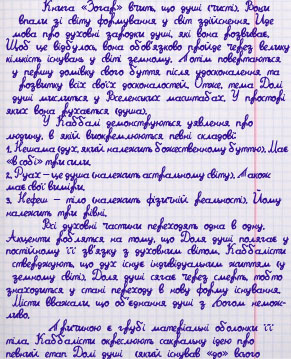 Книга «Зогар» вчить, що душі чисті. Вони
впали зі світу формування у світ здійснення. Йде
мова про духовні зародки душі, які вона розвиває.
Щоб це відбулось, вона обов'язково пройде через велику
кількість існувань у світі земному. Потім повертаються
у першу домівку свого буття після удосконалення та
розвитку всіх своїх досконалостей. Отже, тема Долі
душі мислится у Вселенських масштабах. У просторі
яких вона рухається (душа).
У Каббалі демонструються уявлення про
людину, в якій виокремлюються певні складові:
1. Нешама (дух, який належить божественному буттю). Має
«в собі» три сили.
2. Руах – це душа (належить астральному світу). Також
має свої виміри.
3. Нефеш – тіло (належить фізичній реальності). Йому
належить три рівні.
Всі духовні частини переходять одна в одну.
Акценти робляться на тому, що Доля душі полягає у
постійному її зв'язку з духовним світом. Каббалісти
стверджують, що дух існує індивідуальним життям (у
земному світі). Доля душі сягає через смерть, тобто
знаходиться у стані переходу в нову форму існування.
Містики вважали, що об'єднання душі з Богом немож-
ливо.
Причиною є грубі матеріальні оболонки її
тіла. Каббалісти окреслюють сакральну ідею про
певний етап Долі душі (який існував «до» всього